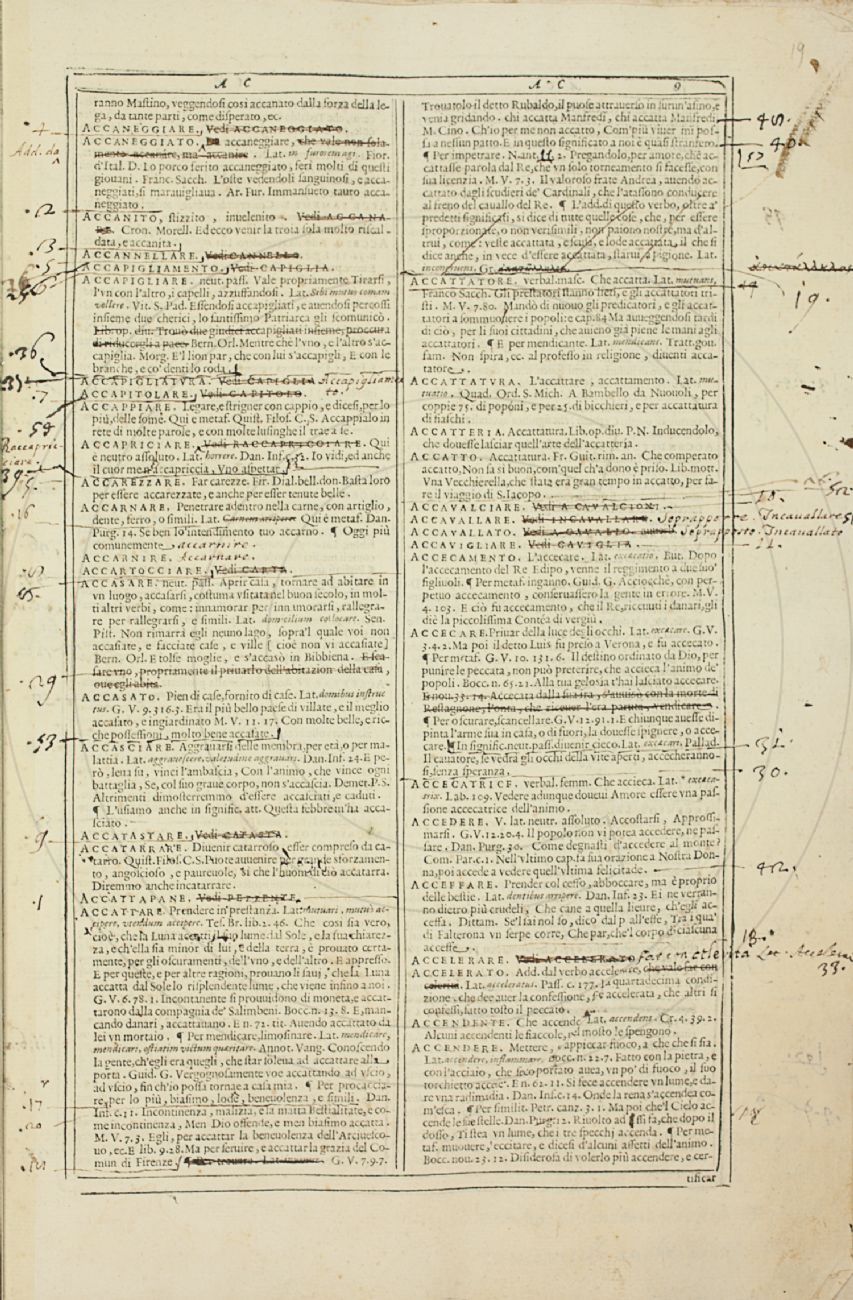 19
A C
A C
9
ranno Maſtino, veggendoſi così accanato dalla forza della le-
ga, da tante parti, come diſperato, ec.
ACCANEGGIARE. Vedi ACCANEGGIATO.
ACCANEGGIATO. Da accaneggiare, che vale non ſola-
mente accanare, ma accanire. Lat. Fior.
d'Ital. D. Lo porco ferito accaneggiato, ferì molti di queſti
giouani. Franc. Sacch. L'oſte vedendoli ſanguinoſi, e acca-
neggiati, ſi marauigliaua. Ar. Fur. Immanſueto tauro acca-
neggiato.
ACCANITO, ſtizzito, inuelenito. Vedi ACCANA-
RE. Cron. Morell. Ed ecco venir la troia ſola molto riſcal-
data, e accanita.
ACCANNELLARE. Vedi CANNELLO.
ACCAPIGLIAMENTO. Vedi CAPIGLIA.
ACCAPIGLIARE. neut. paſſ. Vale propriamente Tirarſi,
l'vn con l'altro, i capelli, azzuffandoſi. Lat. Sibi mutuo comam
vellere. Vit. S. Pad. Eſſendoſi accapigliati, e auendoſi percoſſi
inſieme due cherici, lo ſantiſſimo Patriarca gli ſcomunicò.
Libr. op. diu. Trouò due giudici accapigliati inſieme, proccura
di riducergli a pace. Bern. Orl. Mentre che l'vno, e l'altro s'ac-
capiglia. Morg. E'l lion par, che con lui s'accapigli, E con le
branche, e co' denti lo roda.
ACCAPIGLIATVRA. Vedi CAPIGLIA. Accapigliamen
ACCAPITOLARE. Vedi CAPITOLO. to.
ACCAPPIARE. Legare, e ſtrigner con cappio, e diceſi, per lo
più, delle ſome. Qui è metaf. Quiſt. Filoſ. C. S. Accappialo in
rete di molte parole, e con molte luſinghe il trae a ſe.
ACCAPRICIARE. Vedi RACCAPRICCIARE. Qui
è neutro aſſoluto. Lat. horrere. Dan. Inf. c. 22. Io vidi, ed anche
il cuor men accapriccia, Vno aſpettar.
ACCAREZZARE. Far carezze. Fir. Dial. bell. don. Baſta loro
per eſſere accarezzate, e anche per eſſer tenute belle.
ACCARNARE. Penetrare adentro nella carne, con artiglio,
dente, ferro, o ſimili. Lat. Qui è metaf. Dan.
Purg. 14. Se ben lo 'ntendimento tuo accarno. ¶ Oggi più
comunemente accarnire.
ACCARNIRE. Accarnare.
ACCARTOCCIARE. Vedi CARTA.
ACCASARE. neut. paſſ. Aprir caſa, tornare ad abitare in
vn luogo, accaſarſi, coſtuma vſitata nel buon ſecolo, in mol-
ti altri verbi, come: innamorar per innamorarſi, rallegra-
re per rallegrarſi, e ſimili. Lat. domicilium collocare. Sen.
Piſt. Non rimarrà egli neuno lago, ſopra'l quale voi non
accaſiate, e facciate caſe, e ville [ cioè non vi accaſiate]
Bern. Orl. E tolſe moglie, e s'accasò in Bibbiena.
ACCASATO. Pien di caſe, fornito di caſe. Lat. domibus inſtruc
tus. G. V. 9. 316. 3. Era il più bello paeſe di villate, e il meglio
accaſato, e ingiardinato M. V. 11. 17. Con molte belle, e ric-
che poſſeſſioni, molto bene accaſate.
ACCASCIARE. Aggrauarſi delle membra, per età, o per ma-
lattia. Lat. aggraueſcere, valetudine aggrauari. Dan. Inf. 24. E pe-
rò, leua ſu, vinci l'ambaſcia, Con l'animo, che vince ogni
battaglia, Se, col ſuo graue corpo, non s'accaſcia. Demet. P. S.
Altrimenti dimoſterremmo d'eſſere accaſciati, e caduti.
¶ L'vſiamo anche in ſignific. att. Queſta febbre m'ha acca-
ſciato.
ACCATASTARE. Vedi CATASTA.
ACCATARRARE. Diuenir catarroſo, eſſer compreſo da ca-
tarro. Quiſt. Filoſ. C. S. Puote auuenire per grande sforzamen-
to, angoſcioſo, e paureuole, sì che l'huomo di ciò accatarra.
Diremmo anche incatarrare.
ACCATTAPANE. Vedi PEZZENTE.
ACCATTARE. Prendere in preſtanza. Lat. mutuari, mutuò ac-
cipere, vtendum accipere. Teſ. Br. lib. 2. 46. Che così ſia vero,
cioè, che la Luna accatti ſuo lume dal Sole, e la ſua chiarez-
za, e ch'ella ſia minor di lui, e della terra, è prouato certa-
mente, per gli oſcuramenti, dell'vno, e dell'altro. E appreſſo.
E per queſte, e per altre ragioni, prouano li ſaui, che la Luna
accatta dal Sole lo riſplendente lume, che viene inſino a noi.
G. V. 6. 78. 1. Incontanente ſi prouuidono di moneta, e accat-
tarono dalla compagnia de' Salimbeni. Bocc. n. 13. 8. E, man-
cando danari, accattauano. E n. 72. tit. Auendo accattato da
lei vn mortaio. ¶ Per mendicare, limoſinare. Lat. mendicare,
mendicari, oſtiatim victum quæritare. Annot. Vang. Conoſcendo
la gente, ch'egli era quegli, che ſtar ſoleua ad accattare alla
porta. Guid. G. Vergognoſamente voe accattando ad vſcio,
ad vſcio, fin ch'io poſſa tornare a caſa mia. ¶ Per procaccia-
re, per lo più, biaſimo, lode, beneuolenza, e ſimili. Dan.
Inf. c. 11. Incontinenza, malizia, e la matta Beſtialitate, e co-
me incontinenza, Men Dio offende, e men biaſimo accatta.
M. V. 7. 3. Egli, per accattar la beneuolenza dell'Arciueſco-
uo, ec. E lib. 9. 28. Ma per ſeruire, e accattar la grazia del Co-
mun di Firenze. G. V. 7. 9. 7.
Trouatolo il detto Rubaldo, il puoſe attrauerſo in ſur vn'aſino, e
venia gridando. chi accatta Manfredi, chi accatta Manfredi,
M. Cino. Ch'io per me non accatto, Com'più viuer mi poſ-
ſa a neſſun patto. E in queſto ſignificato a noi è quaſi ſtraniero.
¶ Per impetrare. N. ant. 2. Pregandolo, per amore, che ac-
cattaſſe parola dal Re, che vn ſolo torneamento ſi faceſſe, con
ſua licenzia. M. V. 7. 3. Il valoroſo frate Andrea, auendo ac-
cattato dagli ſcudieri de' Cardinali, che l'ataſſono conducere
al freno del cauallo del Re. ¶ L'add. di queſto verbo, oltre a'
predetti ſignificati, ſi dice di tutte quelle coſe, che, per eſſere
ſproporzionate, o non veriſimili, non paiono noſtre, ma d'al-
trui, come: veſte accattata, e ſcuſa, e lode accattata, il che ſi
dice anche, in vece d'eſſere accattata, ſtarui a pigione. Lat.
inconueniens. Gr.
ACCATTATORE. verbal. maſc. Che accatta. Lat. mutuans.
Franco Sacch. Gli preſtatori ſtanno lieti, e gli accattatori tri-
ſti. M. V. 7. 80. Mandò di nuouo gli predicatori, e gli accat-
tatori a ſommuouere i popoli: e cap. 84 Ma auueggendoſi tardi
di ciò, per li ſuoi cittadini, che aueno già piene le mani agli
accattatori. ¶ E per mendicante. Lat. mendicans. Tratt. gou.
fam. Non ſpira, ec. al profeſſo in religione, diuenti acca-
tatore.
ACCATTATVRA. L'accattare, accattamento. Lat. mu-
tuatio. Quad. Ord. S. Mich. A Bambello da Nuouoli, per
coppie 75. di poponi, e per 25. di bicchieri, e per accattatura
di fiaſchi.
ACCATTERIA. Accattatura. Lib. op. diu. P. N. Inducendolo,
che doueſſe laſciar quell'arte dell'accatteria.
ACCATTO. Accattatura. Fr. Guit. rim. an. Che comperato
accatto, Non ſa sì buon, com'quel ch'a dono è priſo. Lib. mott.
Vna Vecchierella, che ſtata era gran tempo in accatto, per fa-
re il viaggio di S. Iacopo.
ACCAVALCIARE. Vedi A CAVALCIONI.
ACCAVALLARE. Vedi INCAVALLARE. Soprapporre. Incauallare
ACCAVALLATO. Vedi A CAVALLO. Soprapposto. Incauallato
ACCAVIGLIARE. Vedi CAVIGLIA.
ACCECAMENTO. L'accecare. Lat. excæcatio. But. Dopo
l'accecamento del Re Edipo, venne il reggimento a due ſuo'
figliuoli. ¶ Per metaf. inganno. Guid. G. Acciocchè, con per-
petuo accecamento, conſeruaſſero la gente in errore. M. V.
4. 103. E ciò fu accecamento, che il Re, riceuuti i danari, gli
diè la piccoliſſima Contea di vergiù.
ACCECARE. Priuar della luce degli occhi. Lat. excæcare. G. V.
3. 4. 2. Ma poi il detto Luis fu preſo a Verona, e fu accecato.
¶ Per metaf. G. V. 10. 131. 6. Il deſtino ordinato da Dio, per
punire le peccata, non può preterire, che accieca l'animo de'
popoli. Bocc. n. 65. 21. Alla tua geloſia t'hai laſciato accecare.
¶ Per oſcurare, ſcancellare. G. V. 12. 91. 1. E chiunque aueſſe di-
pinta l'arme ſua in caſa, o di fuori, la doueſſe iſpignere, o acce-
care. ¶ In ſignific. neut. paſſ. diuenir cieco. Lat. excæcari. Pallad.
Il cauatore, ſe vedrà gli occhi della vite aperti, accecheranno-
ſi, ſenza ſperanza.
ACCECATRICE. verbal. femm. Che accieca. Lat. excæca-
trix. Lab. 109. Vedere adunque doueui Amore eſſere vna paſ-
ſione accecatrice dell'animo.
ACCEDERE. V. lat. neutr. aſſoluto. Accoſtarſi, Approſſi-
marſi. G. V. 12. 20. 4. Il popolo non vi potea accedere, ne paſ-
ſare. Dan. Purg. 30. Come degnaſti d'accedere al monte?
Com. Par. c. 1. Nell'vltimo cap. fa ſua orazione a Noſtra Don-
na, poi accede a vedere quell'vltima felicitade.
ACCEFFARE. Prender col ceffo, abboccare, ma è proprio
delle beſtie. Lat. dentibus arripere. Dan. Inf. 23. Ei ne verran-
no dietro più crudeli, Che cane a quella lieure, ch'egli ac-
ceffa. Dittam. Se'l ſai nol ſo, dico dal p all'effe, Tra i qua'
di Falterona vn ſerpe corre, Che par, che'l corpo di ciaſcuna
acceffe.
ACCELERARE. Vedi ACCELERATO. far con celerità Lat. Acceler
ACCELERATO. Add. dal verbo accelerare, che vale far con
celerità. Lat. acceleratus. Paſſ. c. 177. La quartadecima condi-
zione, che dee auer la confeſſione, ſ'è accelerata, che altri ſi
confeſſi, fatto toſto il peccato.
ACCENDENTE. Che accende. Lat. accendens. Cr. 4. 39. 2.
Alcuni accendenti le fiaccole, nel moſto le ſpengono.
ACCENDERE. Mettere, e appiccar fuoco, a che che ſi ſia.
Lat. accendere, inflammare. Bocc. n. 22. 7. Fatto con la pietra, e
con l'acciaio, che ſeco portato auea, vn po' di fuoco, il ſuo
torchietto acceſe. E n. 62. 11. Sì fece accendere vn lume, e da-
re vna radimadia. Dan. Inf. c. 14. Onde la rena s'accendea co-
m'eſca. ¶ Per ſimilit. Petr. canz. 3. 1. Ma poi che'l Cielo ac-
cende le ſue ſtelle. Dan. Purg. 12. Riuolto ad eſſi fa, che dopo il
doſſo, Ti ſtea vn lume, che i tre ſpecchi accenda. ¶ Per me-
taf. muouere, 'eccitare, e diceſi d'alcuni affetti dell'animo.
Bocc. nou. 23. 12. Diſideroſa di volerlo più accendere, e cer-
tificar